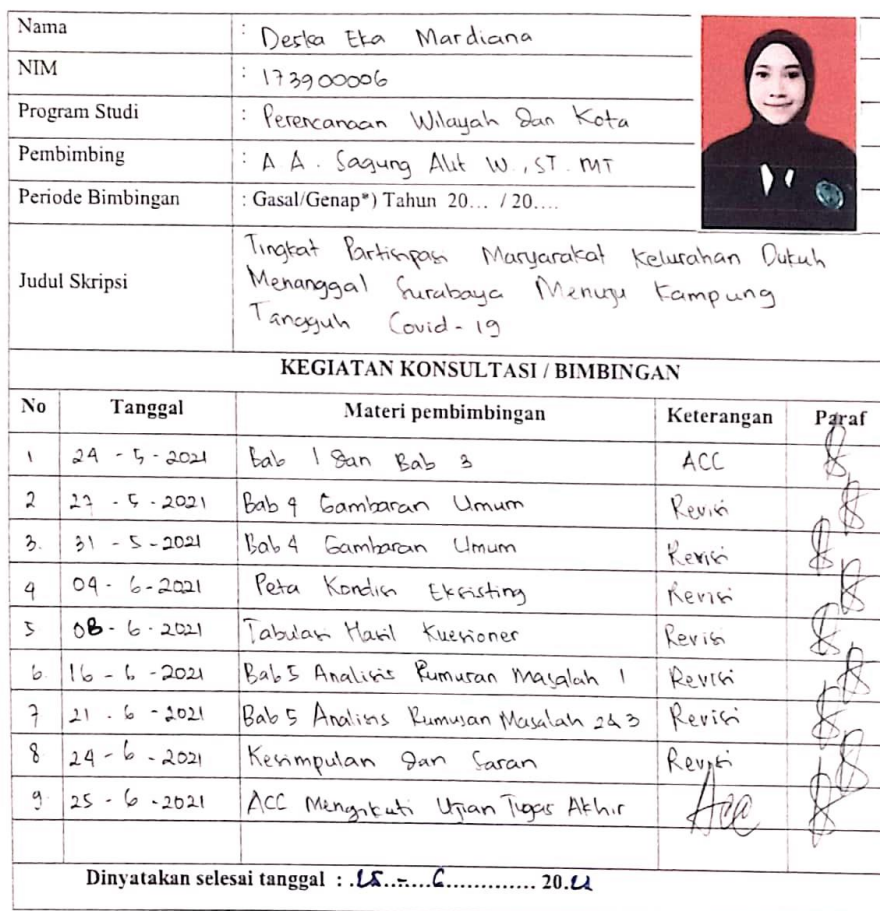 Nama : Deska Eka Mardiana
NIM : 173900006
Program Studi : Perencanaan Wilayah dan Kota
Pembimbing : A A . Sagung Alit W., ST. MT
Periode Bimbingan : Gasal/Genap*) Tahun 20... / 20....
Judul Skripsi
Tingkat Partisipasi Masyarakat Kelurahan Dukuh
Menanggal Surabaya Menuju Kampung
Tangguh Covid-19
KEGIATAN KONSULTASI / BIMBINGAN
No Tanggal Materi pembimbingan Keterangan Paraf
1 24 - 5 - 2021 Bab 1 dan Bab 3 ACC
2 27 - 5 - 2021 Bab 4 Gambaran Umum Revisi
3. 31 - 5 - 2021 Bab 4 Gambaran Umum Revisi
4 04 - 6 - 2021 Peta Kondisi Eksisting Revisi
5 08 - 6 - 2021 Tabulasi Hasil Kuesioner Revisi
6. 16 - 6 - 2021 Bab 5 Analisis Rumusan Masalah 1 Revisi
7 21 - 6 - 2021 Bab 5 Analisis Rumusan Masalah 2&3 Revisi
8 24 - 6 - 2021 Kesimpulan dan Saran Revisi
9. 25 - 6 - 2021 ACC Mengikuti Ujian Tugas Akhir ACC
Dinyatakan selesai tanggal : .25.-......6............. 20.21